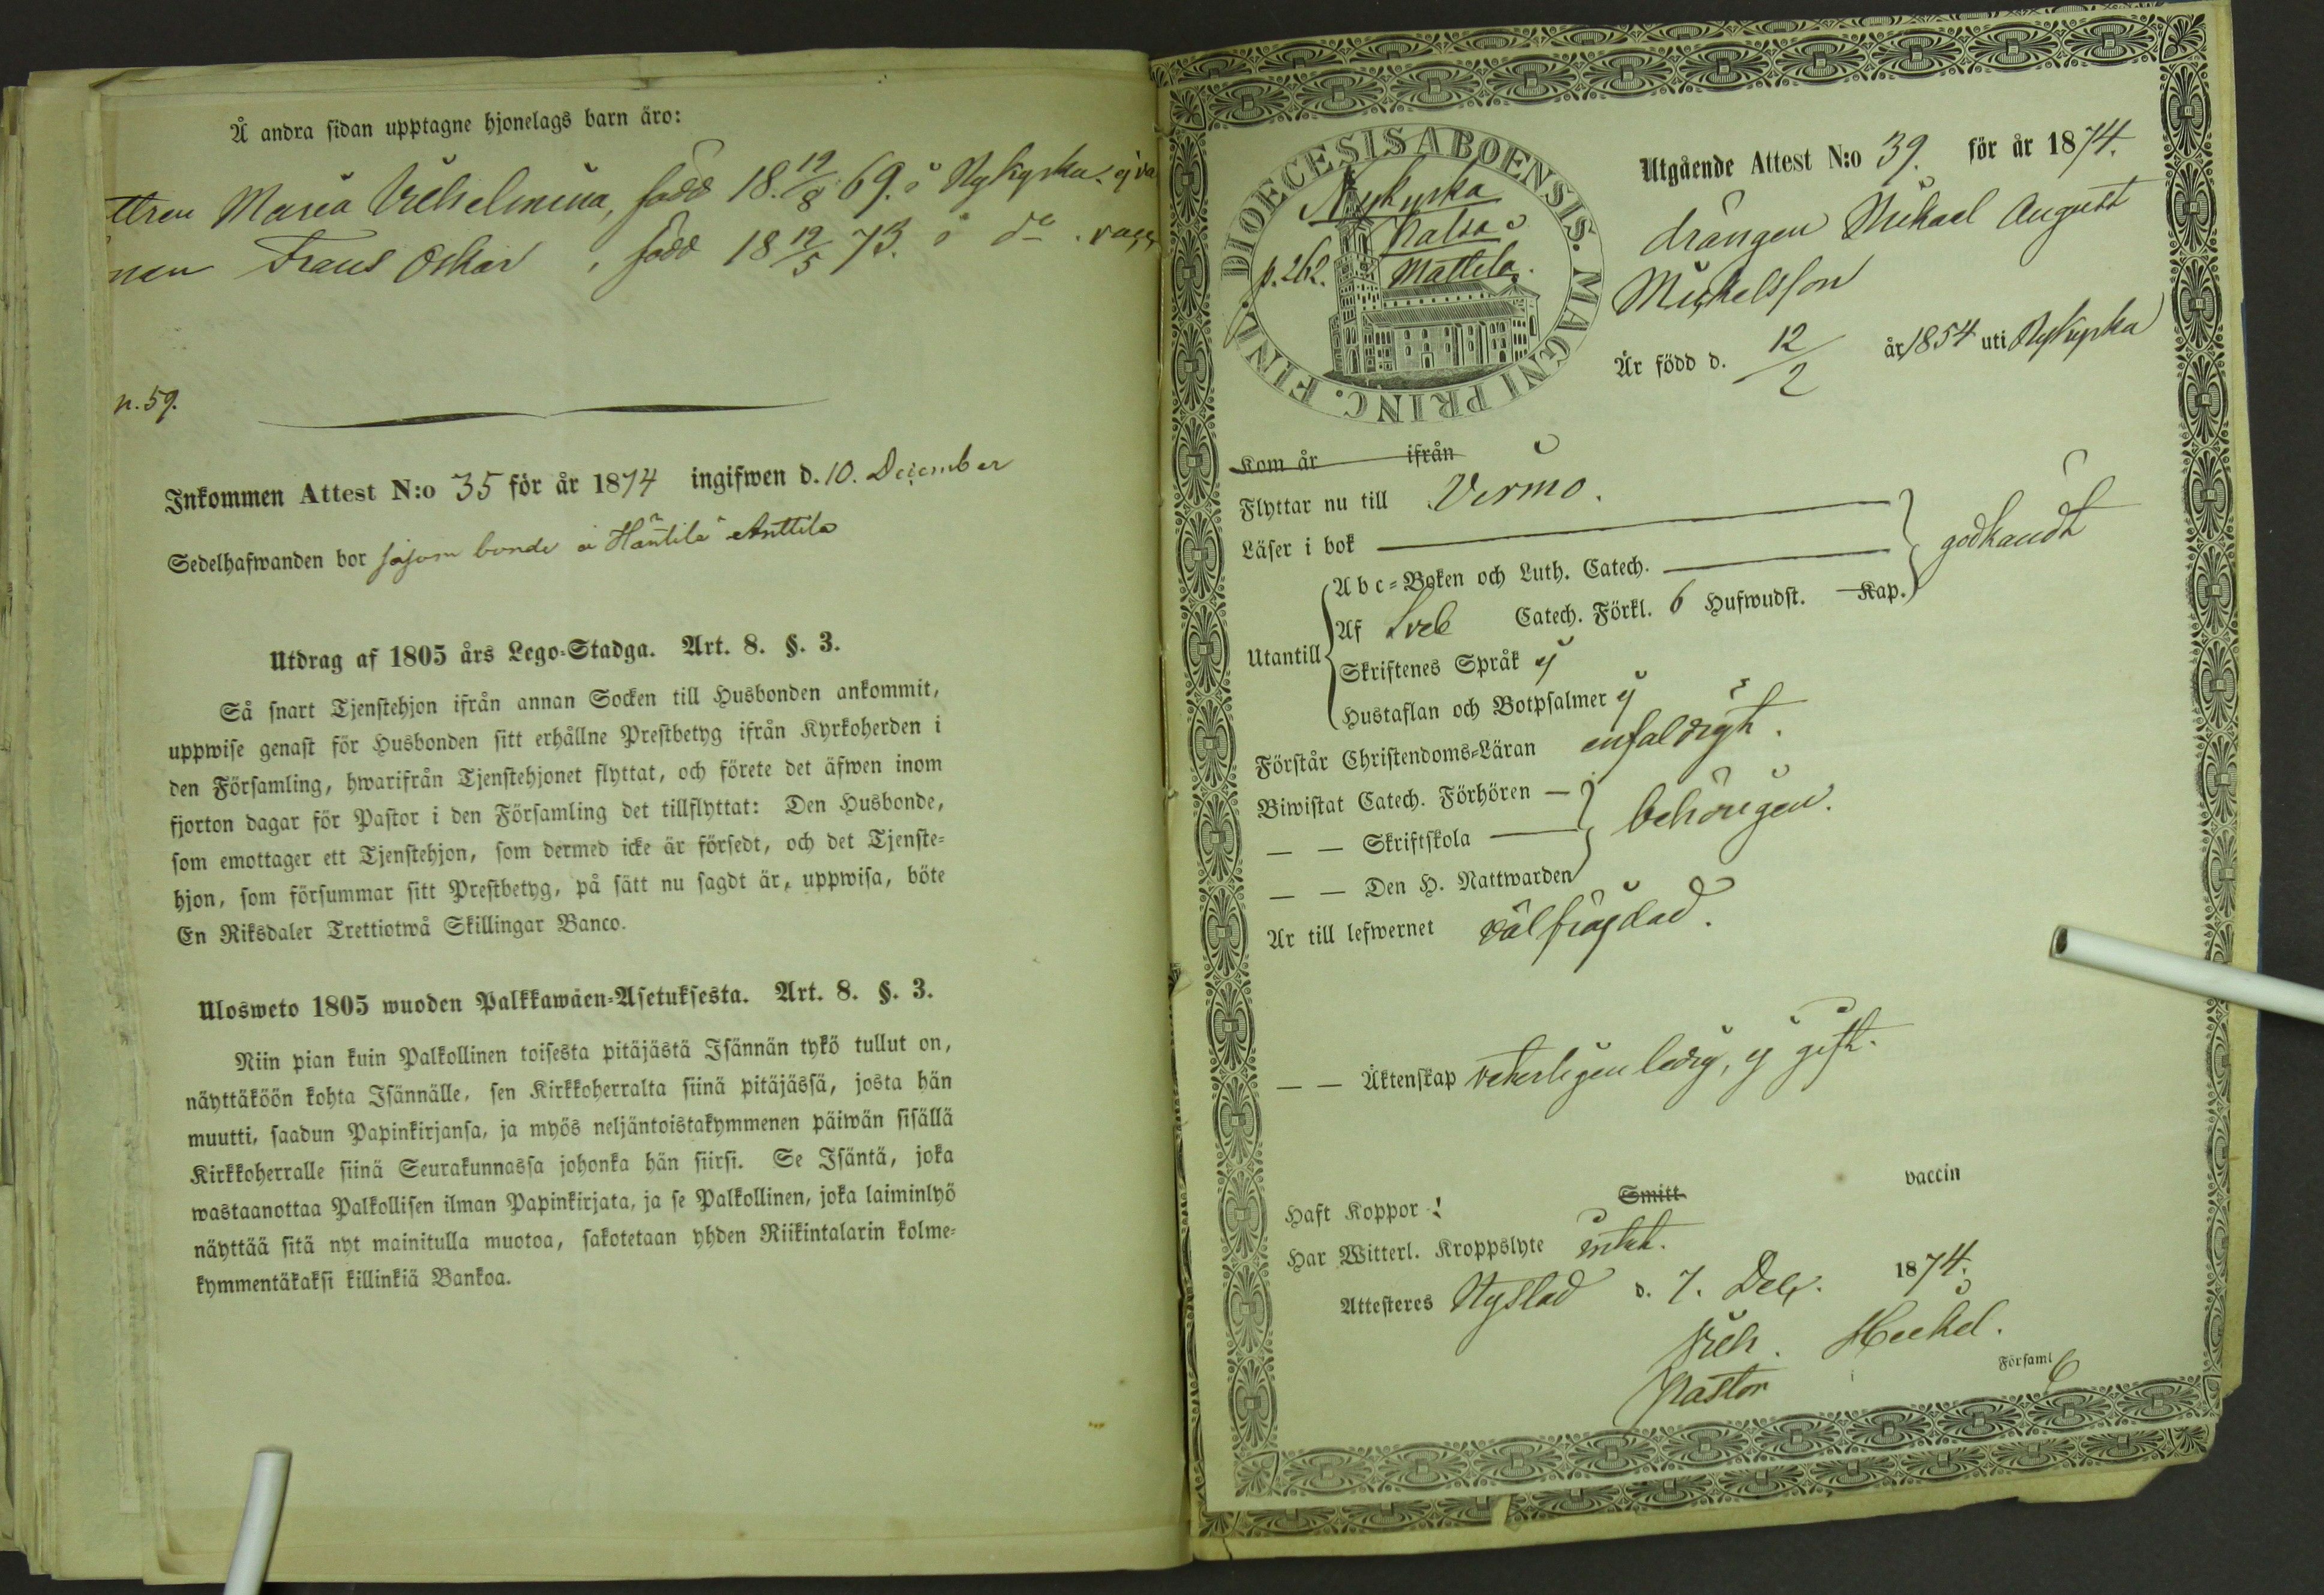 Å andra sidan upptagne hjonelags barn äro:
ttren Maria Vilhelmina, född 18 12/8 69. i Nykyrka. ej va
nen Frans Oskar, född 18 12/5 73. i do. vacc
n. 59.
Inkommen Attest N:o 35 för år 1874 ingifwen d. 10. December
Sedelhafwanden bor såsom bonde å Häntilä Anttila
Utdrag af 1805 års Lego-Stadga. Art. 8. §. 3.
Så snart Tjenstehjon ifrån annan Socken till Husbonden ankommit,
uppwise genast för Husbonden sitt erhållne Prestbetyg ifrån Kyrkoherden i
den Församling, hwarifrån Tjenstehjonet flyttat, och förete det äfwen inom
fjorton dagar för Pastor i den Församling det tillflyttat: Den Husbonde,
som emottager ett Tjenstehjon, som dermed icke är försedt, och det Tjenste-
hjon, som försummar sitt Prestbetyg, på sätt nu sagdt är, uppwisa, böte
En Riksdaler Trettiotwå Skillingar Banco.
Ulosweto 1805 wuoden Palkkawäen-Asetuksesta. Art. 8. §. 3.
Niin pian kuin Palkollinen toisesta pitäjästä Isännän tykö tullut on,
näyttäköön kohta Isännälle, sen Kirkkoherralta siinä pitäjässä, josta hän
muutti, saadun Papinkirjansa, ja myös neljäntoistakymmenen päiwän sisällä
Kirkkoherralle siinä Seurakunnassa johonka hän siirsi. Se Isäntä, joka
wastaanottaa Palkollisen ilman Papinkirjata, ja se Palkollinen, joka laiminlyö
näyttää sitä nyt mainitulla muotoa, sakotetaan yhden Riikintalarin kolme-
kymmentäkaksi killinkiä Bankoa.
DIOECESIS ABOENSIS. MAGNI PRINC. FINL.
Nykyrka
Kalso
p. 262. Mattila.
Utgående Attest N:o 39. för år 1874.
drängen Mikael August
Mickelsson
Är född d. 12/2 år 1854 uti Nykyrka
Kom år ifrån
Flyttar nu till Virmo.
Läser i bok
Abc-Boken och Luth. Catech.
godkändt
Utantill
Af Sveb Catech. Förkl. 6 Hufwudst. Kap.
Skriftenes Språk ej
Hustaflan och Botpsalmer ej
Förstår Christendoms-Läran enfaldigt.
Biwistat Catech. Förhören —
— — Skriftskola — behörigen.
— — Den H. Nattwarden
Är till lefwernet välfrägdad.
— — Äktenskap veterligen ledig, ej gift.
Haft Koppor ! Smitt vaccin
Har Witterl. Kroppslyte intet.
Attesteres Nystad d. 7. Dec. 1874.
Vilh. Heckel.
Pastor i Församl